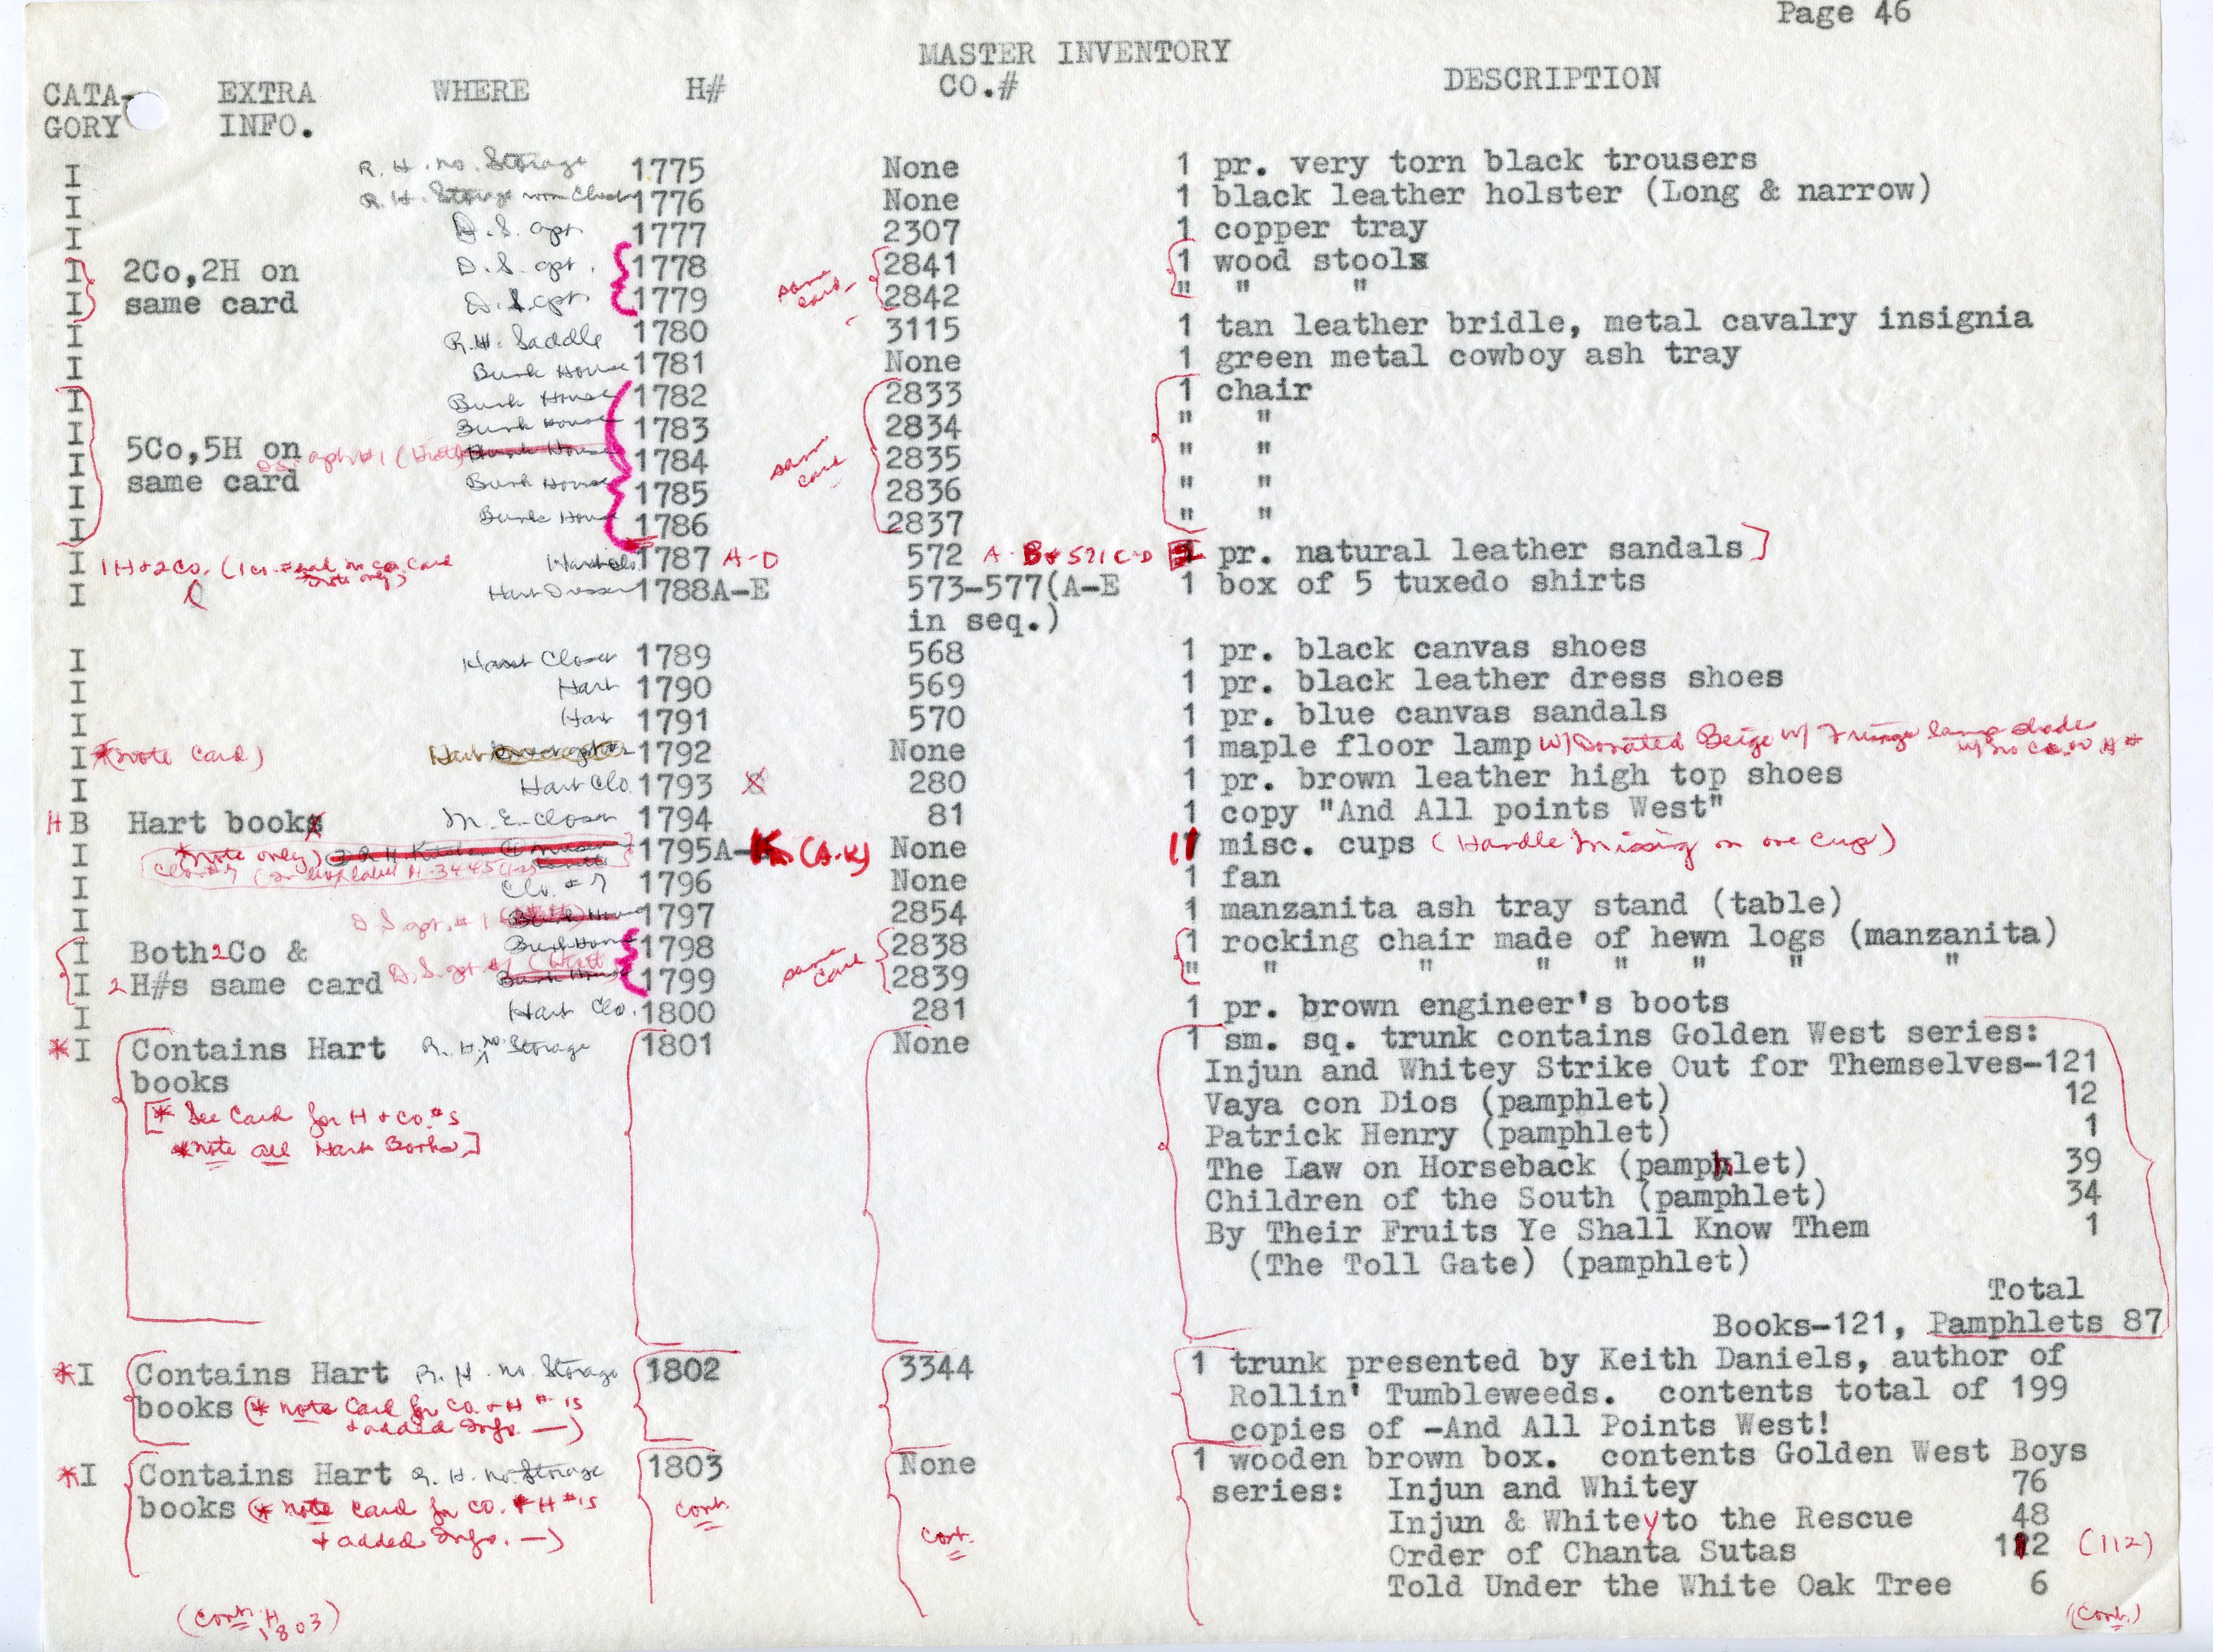 Page 46
MASTER INVENTORY
CATA- EXTRA WHERE H# CO.# DESCRIPTION
GORY INFO.
I R.H. no. Storage 1775 None 1 pr. very torn black trousers
I R.H. Storage 1776 None 1 black leather holster (Long & narrow)
I D.S. apt. 1777 2307 1 copper tray
I 2Co,2H on D.S. apt. 1778 same card 2841 1 wood stools
I same card D.S. apt. 1779 2842 " " "
I R.H. Saddle 1780 3115 1 tan leather bridle, metal cavalry insignia
I Bunk House 1781 None 1 green metal cowboy ash tray
I Bunk House 1782 2833 1 chair
I Bunk House 1783 2834 " "
I 5Co,5H on Bunk House 1784 same card 2835 " "
I same card Bunk House 1785 2836 " "
I Bunk House 1786 2837 " "
I 1H+2Co. Hart Clo 1787 A-D 572 A-B+571 C-D pr. natural leather sandals]
I Hart Dresser 1788A-E 573-577(A-E 1 box of 5 tuxedo shirts
in seq.)
I Hart Closet 1789 568 1 pr. black canvas shoes
I Hart 1790 569 1 pr. black leather dress shoes
I Hart 1791 570 1 pr. blue canvas sandals
I *(note card) Hart 1792 None 1 maple floor lamp w/Donated Beige w/ Fringe lamp shade
w/ no Co. or H#
I Hart Clo. 1793 X 280 1 pr. brown leather high top shoes
H B Hart book M.E. Closet 1794 81 1 copy "And All points West"
I *note only) 1795A-K (A-K) None 11 misc. cups (Handle Missing on one Cup)
I Clo. #7 1796 None 1 fan
I D.S. apt. #1 Bunk House 1797 2854 1 manzanita ash tray stand (table)
I Both 2 Co & Bunk House 1798 same card 2838 1 rocking chair made of hewn logs (manzanita)
I 2 H#s same card Bunk House 1799 2839 " " " " " " " "
I Hart Clo. 1800 281 1 pr. brown engineer's boots
*I Contains Hart R.H. no. Storage 1801 None 1 sm. sq. trunk contains Golden West series:
books Injun and Whitey Strike Out for Themselves-121
[* See Card for H + Co. #s Vaya con Dios (pamphlet) 12
*note all Hart Books] Patrick Henry (pamphlet) 1
The Law on Horseback (pamphlet) 39
Children of the South (pamphlet) 34
By Their Fruits Ye Shall Know Them 1
(The Toll Gate) (pamphlet)
Total
Books-121, Pamphlets 87
*I Contains Hart R.H. no. Storage 1802 3344 1 trunk presented by Keith Daniels, author of
books (* note Card for Co + H #'s Rollin' Tumbleweeds. contents total of 199
+ added Info. —) copies of -And All Points West!
*I Contains Hart R.H. no. Storage 1803 None 1 wooden brown box. contents Golden West Boys
books (* note Card for Co. + H #'s cont. series: Injun and Whitey 76
+ added Info. —) cont. Injun & Whitey to the Rescue 48
Order of Chanta Sutas 112 (112)
Told Under the White Oak Tree 6
(Cont. H 1803) (Cont.)